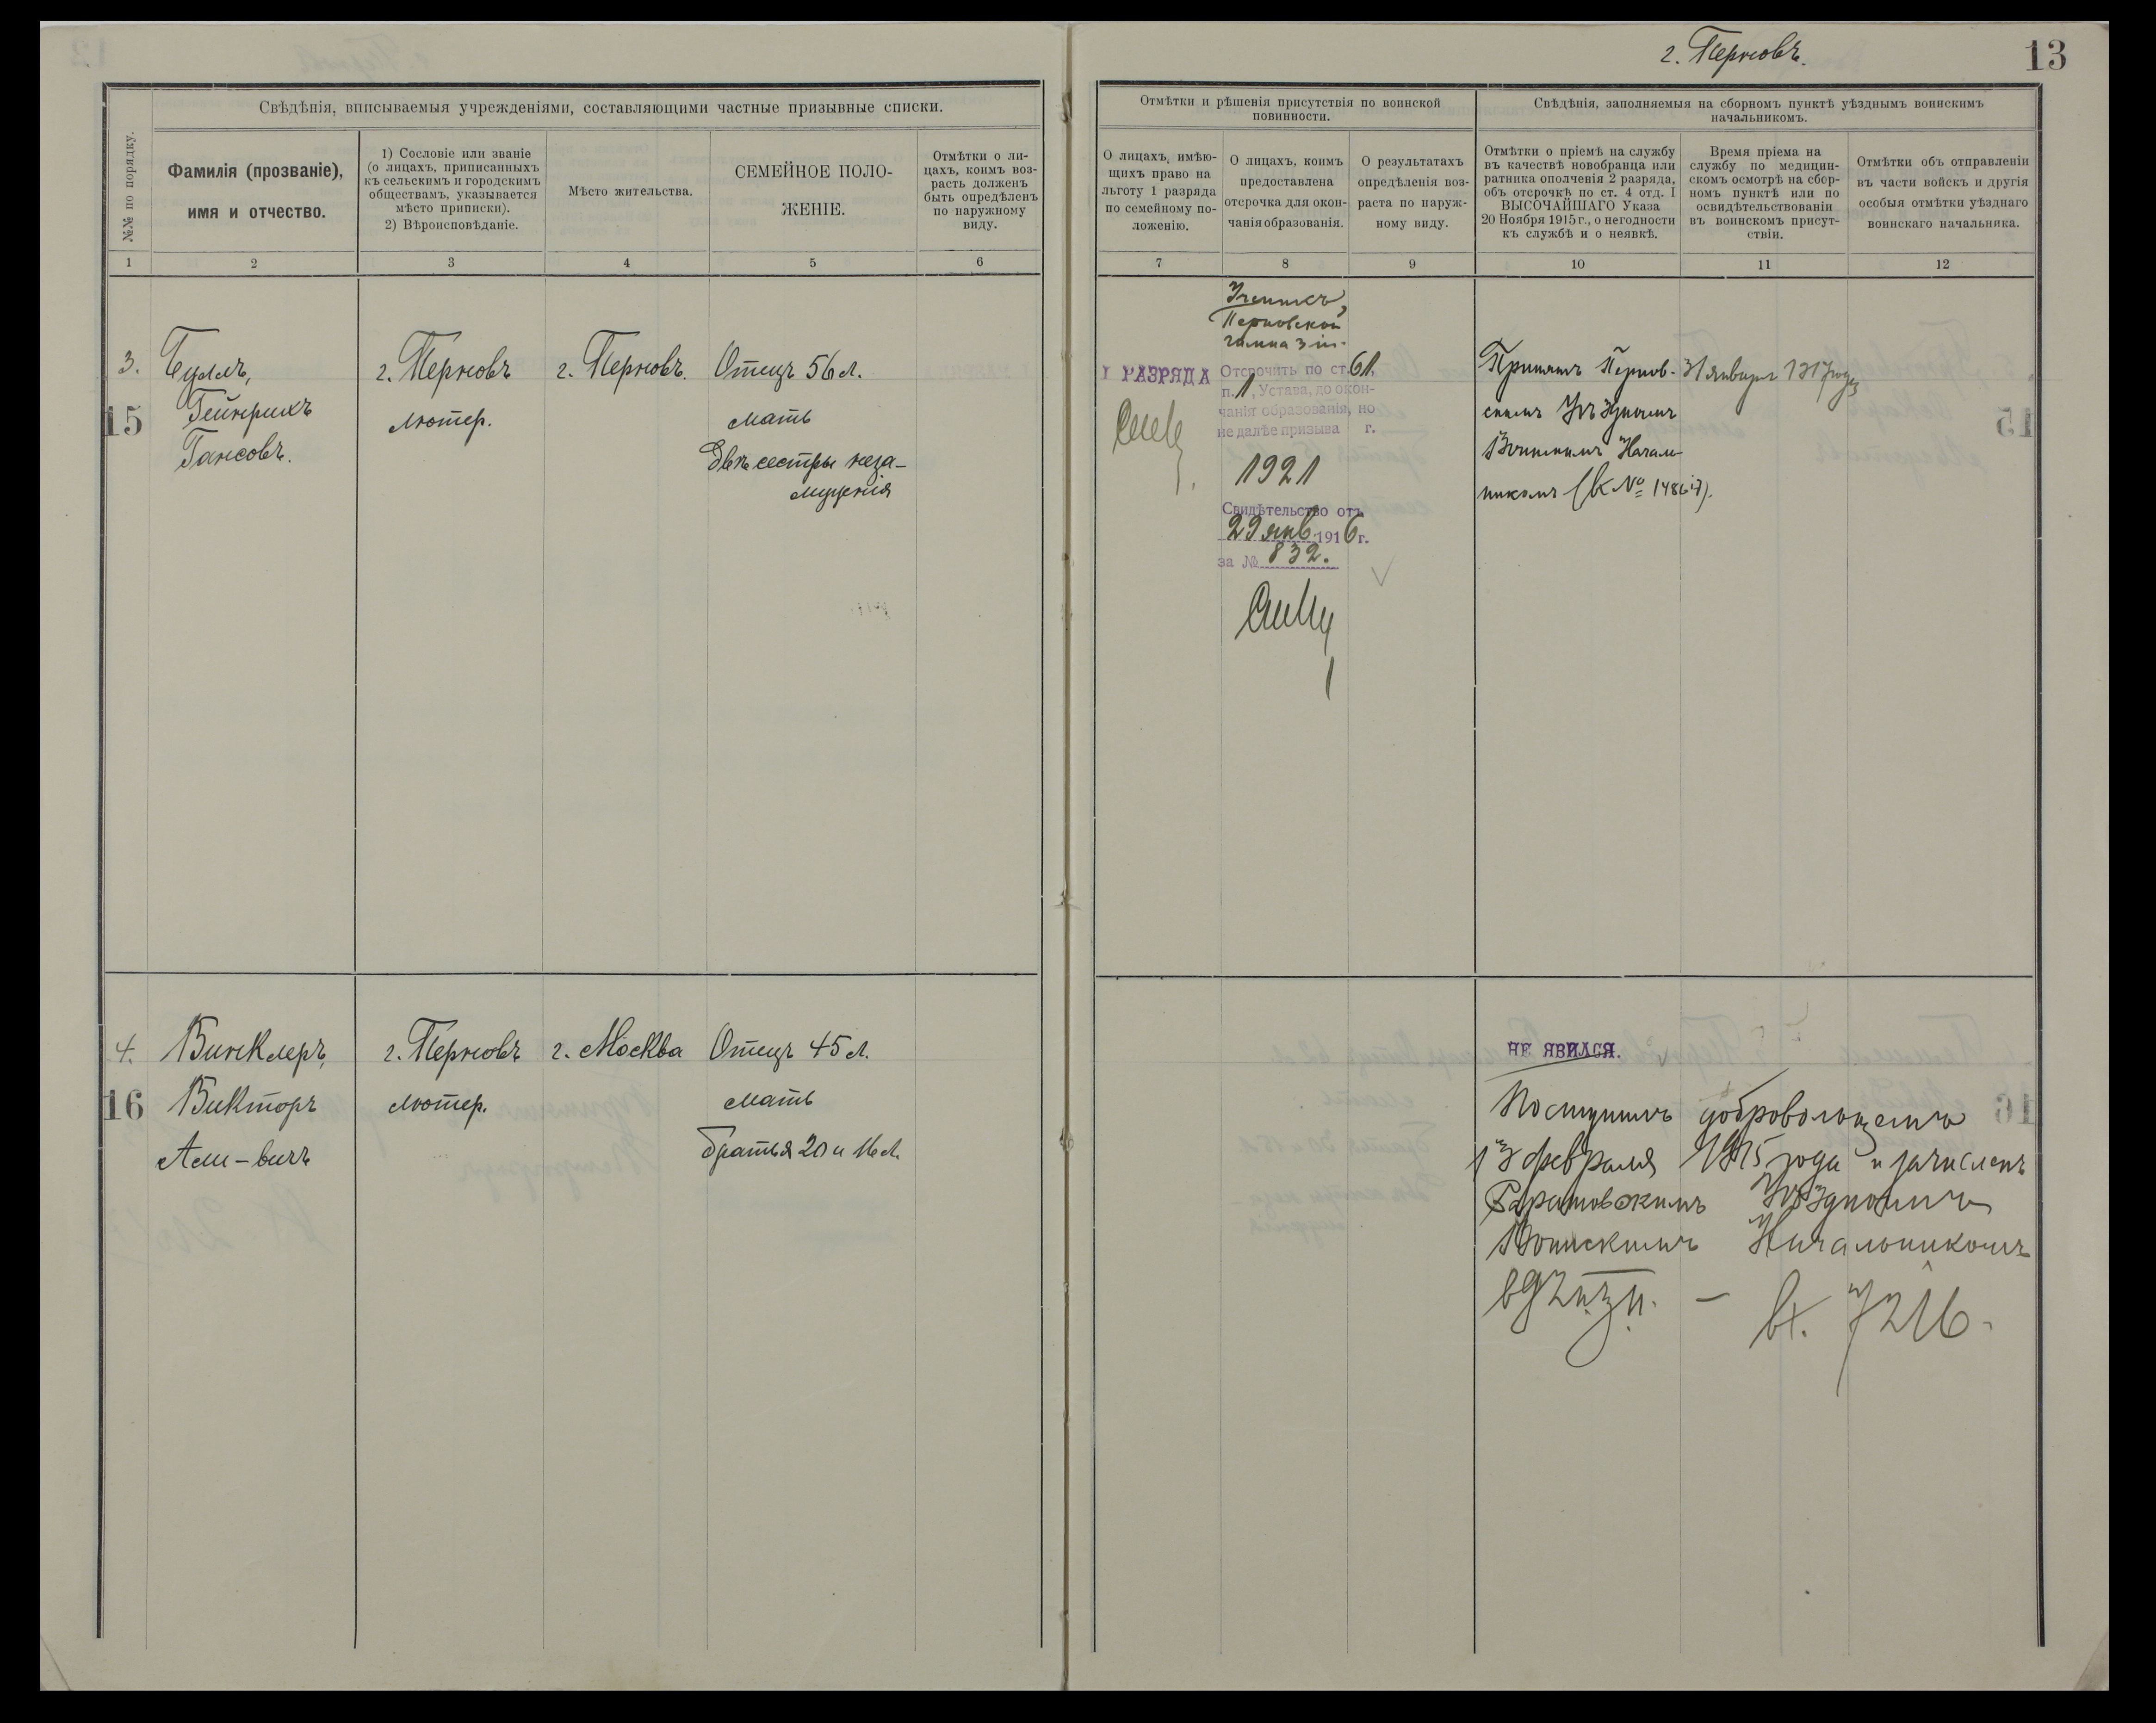 г. Перновъ.
13
Свѣдѣнія, вписываемыя учрежденіями, составляющими частные призывные списки.
№№ по порядку.
Фамилія (прозваніе),
имя и отчество.
1) Сословіе или званіе
(о лицахъ, приписанныхъ
къ сельскимъ и городскимъ
обществамъ, указывается
мѣсто приписки).
2) Вѣроисповѣданіе.
Мѣсто жительства.
СЕМЕЙНОЕ ПОЛО-
ЖЕНІЕ.
Отмѣтки о ли-
цахъ, коимъ воз-
растъ долженъ
быть опредѣленъ
по наружному
виду.
1
2
3
4
5
6
Отмѣтки и рѣшенія присутствія по воинской
повинности.
Свѣдѣнія, заполняемыя на сборномъ пунктѣ уѣзднымъ воинскимъ
начальникомъ.
О лицахъ, имѣю-
щихъ право на
льготу 1 разряда
по семейному по-
ложенію.
О лицахъ, коимъ
предоставлена
отсрочка для окон-
чанія образованія.
О результатахъ
опредѣленія воз-
раста по наруж-
ному виду.
Отмѣтки о пріемѣ на службу
въ качествѣ новобранца или
ратника ополченія 2 разряда,
объ отсрочкѣ по ст. 4 отд. I
ВЫСОЧАЙШАГО Указа
20 Ноября 1915 г., о негодности
къ службѣ и о неявкѣ.
Время пріема на
службу по медицин-
скомъ осмотрѣ на сбор-
номъ пунктѣ или по
освидѣтельствованіи
въ воинскомъ присут-
ствіи.
Отмѣтки объ отправленіи
въ части войскъ и другія
особыя отмѣтки уѣзднаго
воинскаго начальника.
7
8
9
10
11
12
3.
15
Гейнрихъ
Гансовъ.
г. Перновъ
лютер.
г. Перновъ.
Отецъ 56 л.
мать
Двѣ сестры неза-
мужнія
I РАЗРЯДА
Ученикъ
Перновской
Отсрочить по ст. 61,
п. 1, Устава, до окон-
чанія образованія, но
не далѣе призыва г.
1921
Свидѣтельство отъ
29 янв. 1916 г.
за № 832.
Принятъ Пернов-
скимъ Уѣзднымъ
Воинскимъ Началь-
никомъ
31 января 1917 года
4.
16
Винклеръ,
Викторъ
г. Перновъ
лютер.
г. Москва
Отецъ 45 л.
мать
братья 20 и 16 л.
НЕ ЯВИЛСЯ.
Поступилъ добровольцемъ
13 февраля 1915 года и зачисленъ
Уѣзднымъ
Воинскимъ Начальникомъ
вх. 7216.